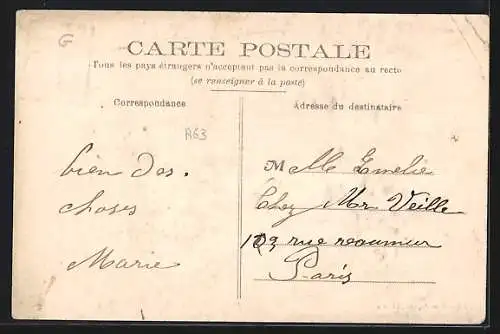 G
CARTE POSTALE
Tous les pays étrangers n'acceptent pas la correspondance au recto
(se renseigner à la poste)
Correspondance
Adresse du destinataire
R63
bien des.
choses
Marie
M Mlle Emelie
Chez Mr Veille
123 rue reaumur
Paris